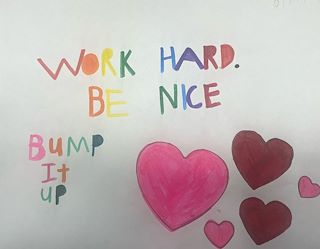 WORK HARD.
BE NICE
BUMP
It
UP